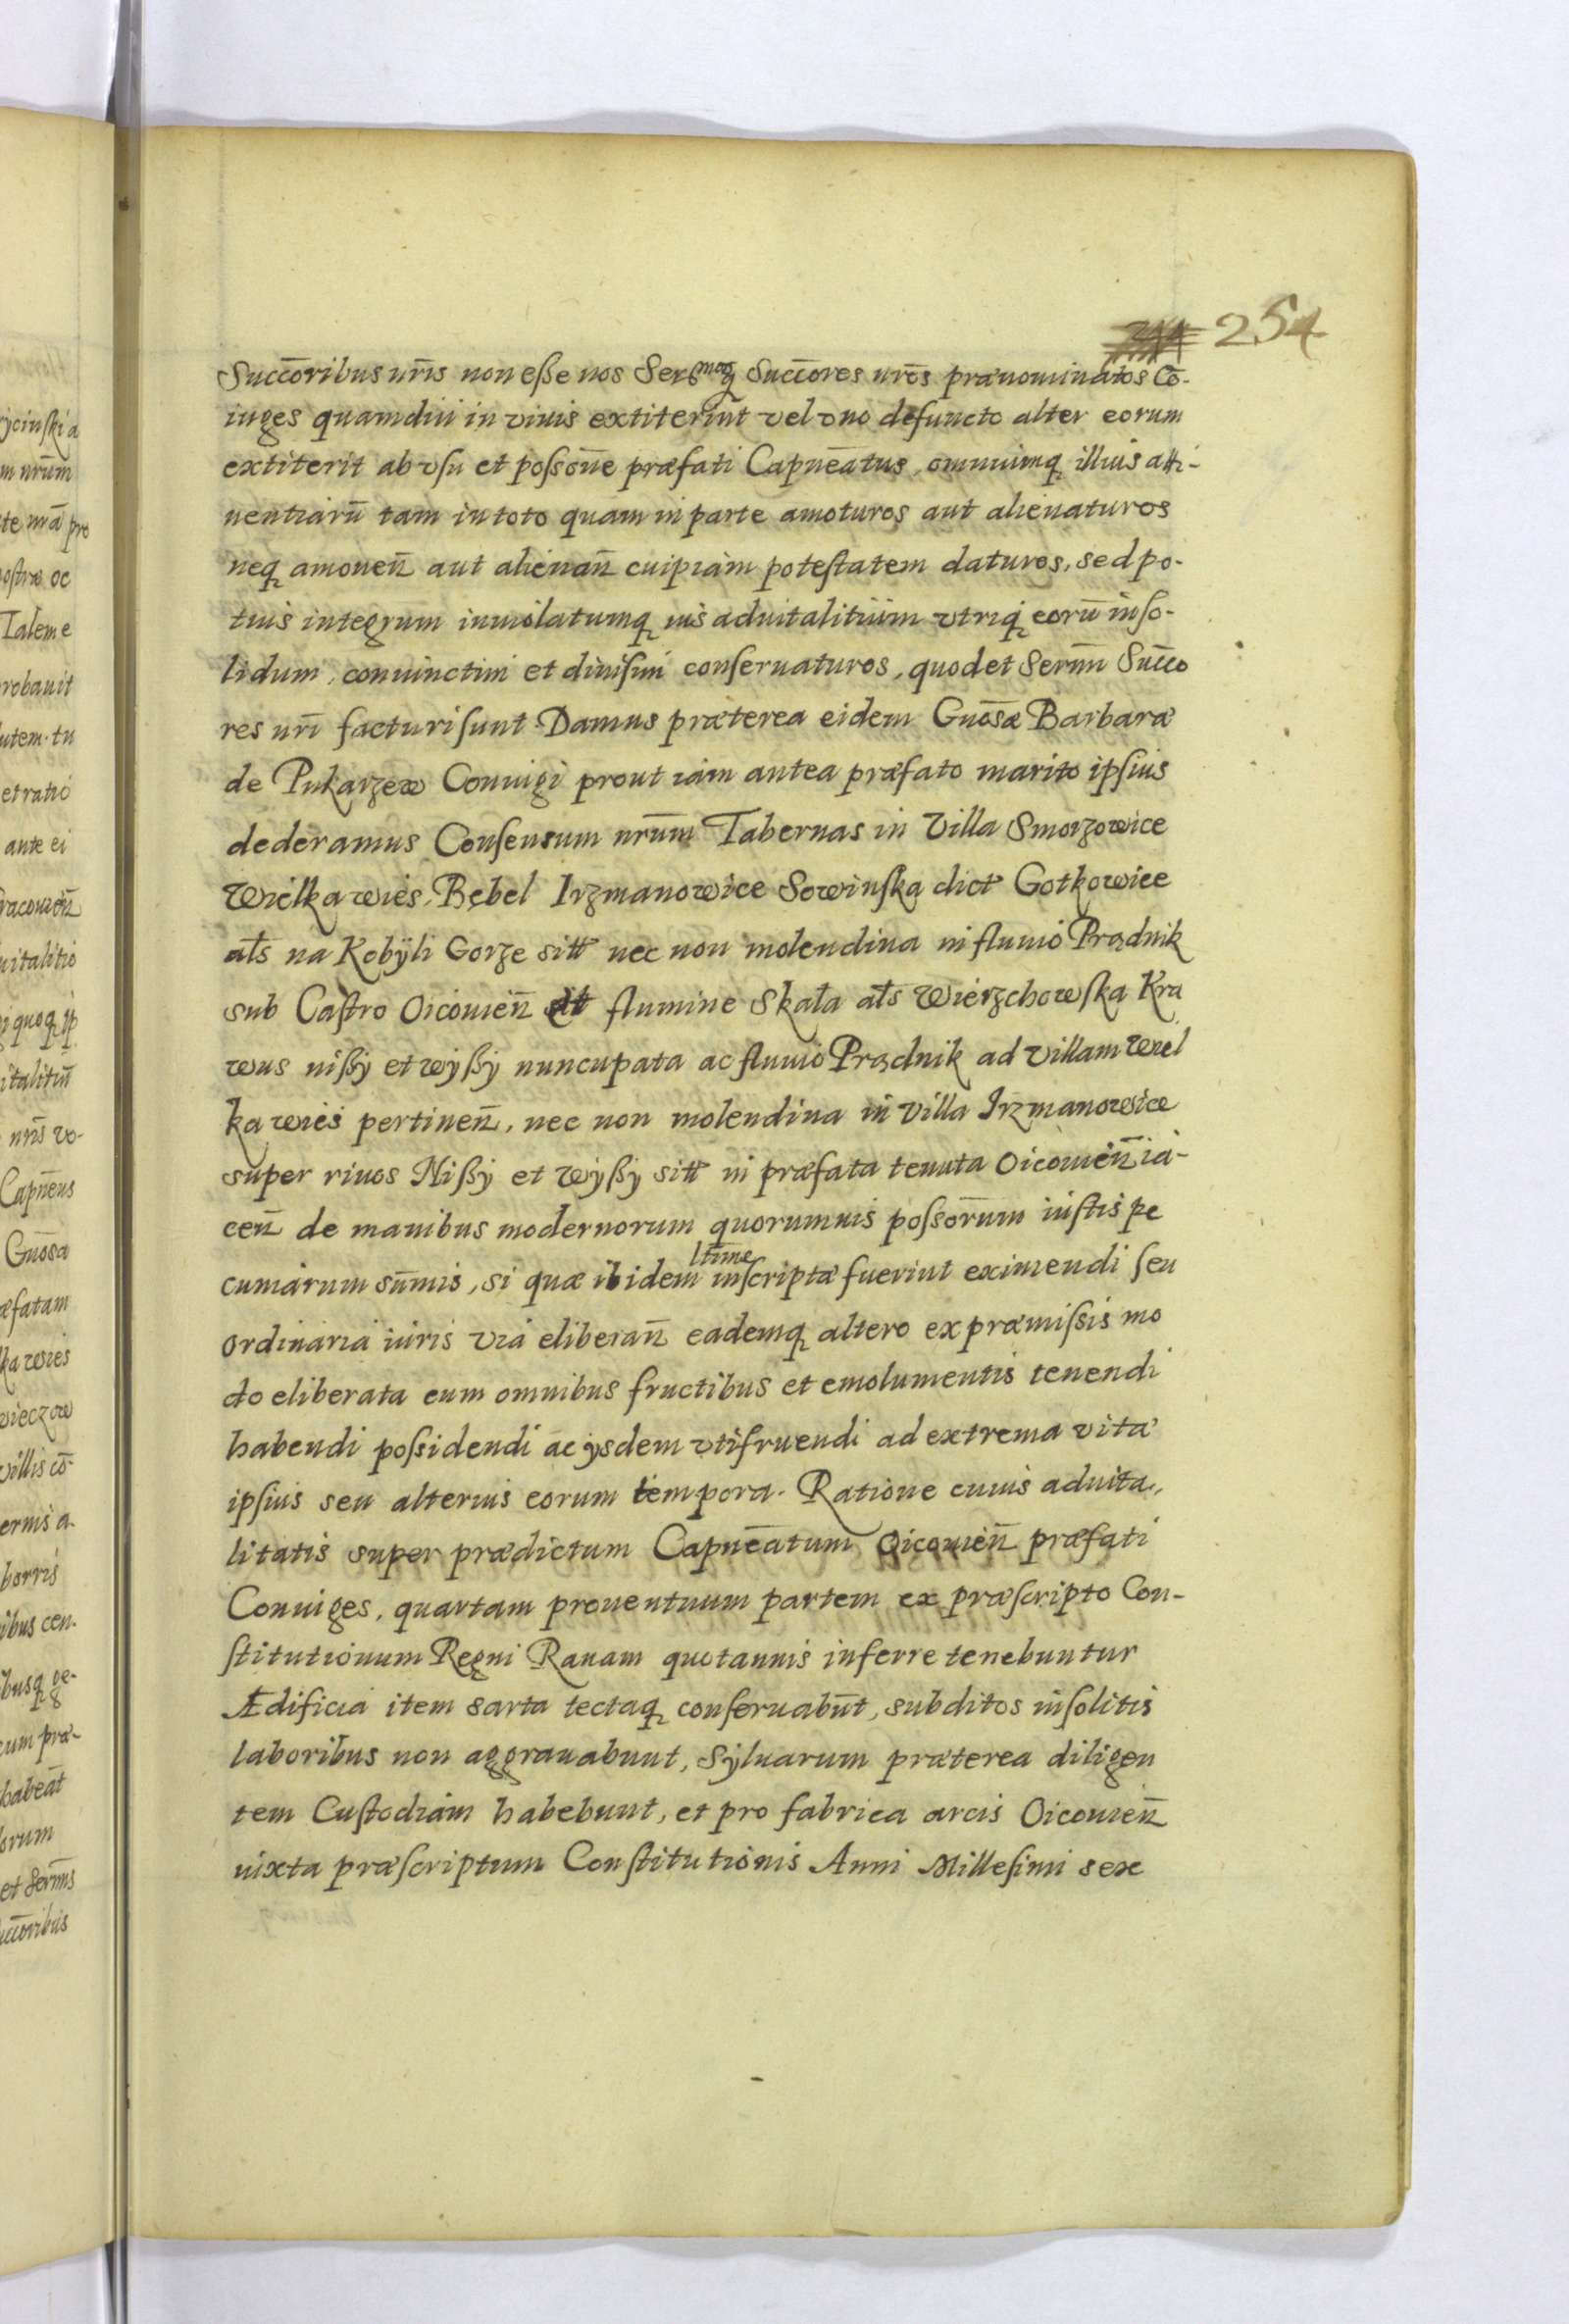 254
Succoribus nris non esse nos Sermosq Succores nros prænominatos Co-
iuges quamdiu in viuis extiterint vel vno defuncto alter eorum
extiterit ab vsu et possone præfati Capneatus, omniumq illius atti-
nentiarū tam in toto quam in parte amoturos aut alienaturos
neq amouen̄ aut alienan̄ cuipiam potestatem daturos, sed po-
tius integrum inuiolatumq ius aduitalitium vtriq eorū in so-
lidum, coniunctim et diuisim conseruaturos, quod et Sermi Succo
res nri facturi sunt. Damus præterea eidem Gnosæ Barbaræ
de Pukarzew Coniugi prout iam antea præfato marito ipsius
dederamus Consensum nrum Tabernas in Villa Smorzowice
Wielka wies, Bębel Irzmanowice Sowinska dict Gotkowice
als na Kobÿli Gorze sitt nec non molendina in fluuio Prądnik
sub Castro Oicouien̄ et flumine Skała als Wierzchowska Kra
wus nißy et wÿßy nuncupata ac fluuio Prądnik ad villam Wiel
ka wies pertinen̄, nec non molendina in Villa Irzmanowice
super riuos Nißy et wÿßy sitt in præfata tenuta Oicouien̄ ia-
cen̄ de manibus modernorum quorumuis possorum iustis pe
cuniarum sum̄is, si quæ ibidem ltime inscriptæ fuerint eximendi seu
ordinaria iuris via eliberan̄ eademq altero ex præmissis mo
do eliberata cum omnibus fructibus et emolumentis tenendi
habendi possidendi ac ijsdem vtifruendi ad extrema vitæ
ipsius seu alterius eorum tempora. Ratione cuius aduita,,
litatis super prædictum Capneatum Oicouien̄ præfati
Coniuges, quartam prouentuum partem ex præscripto Con-
stitutionum Regni Rauam quotannis inferre tenebuntur
Ædificia item sarta tectaq conseruabūt, subditos insolitis
laboribus non aggrauabunt, Syluarum præterea diligen
tem Custodiam habebunt, et pro fabrica arcis Oicouien̄
iuxta præscriptum Constitutionis Anni Millesimi sex